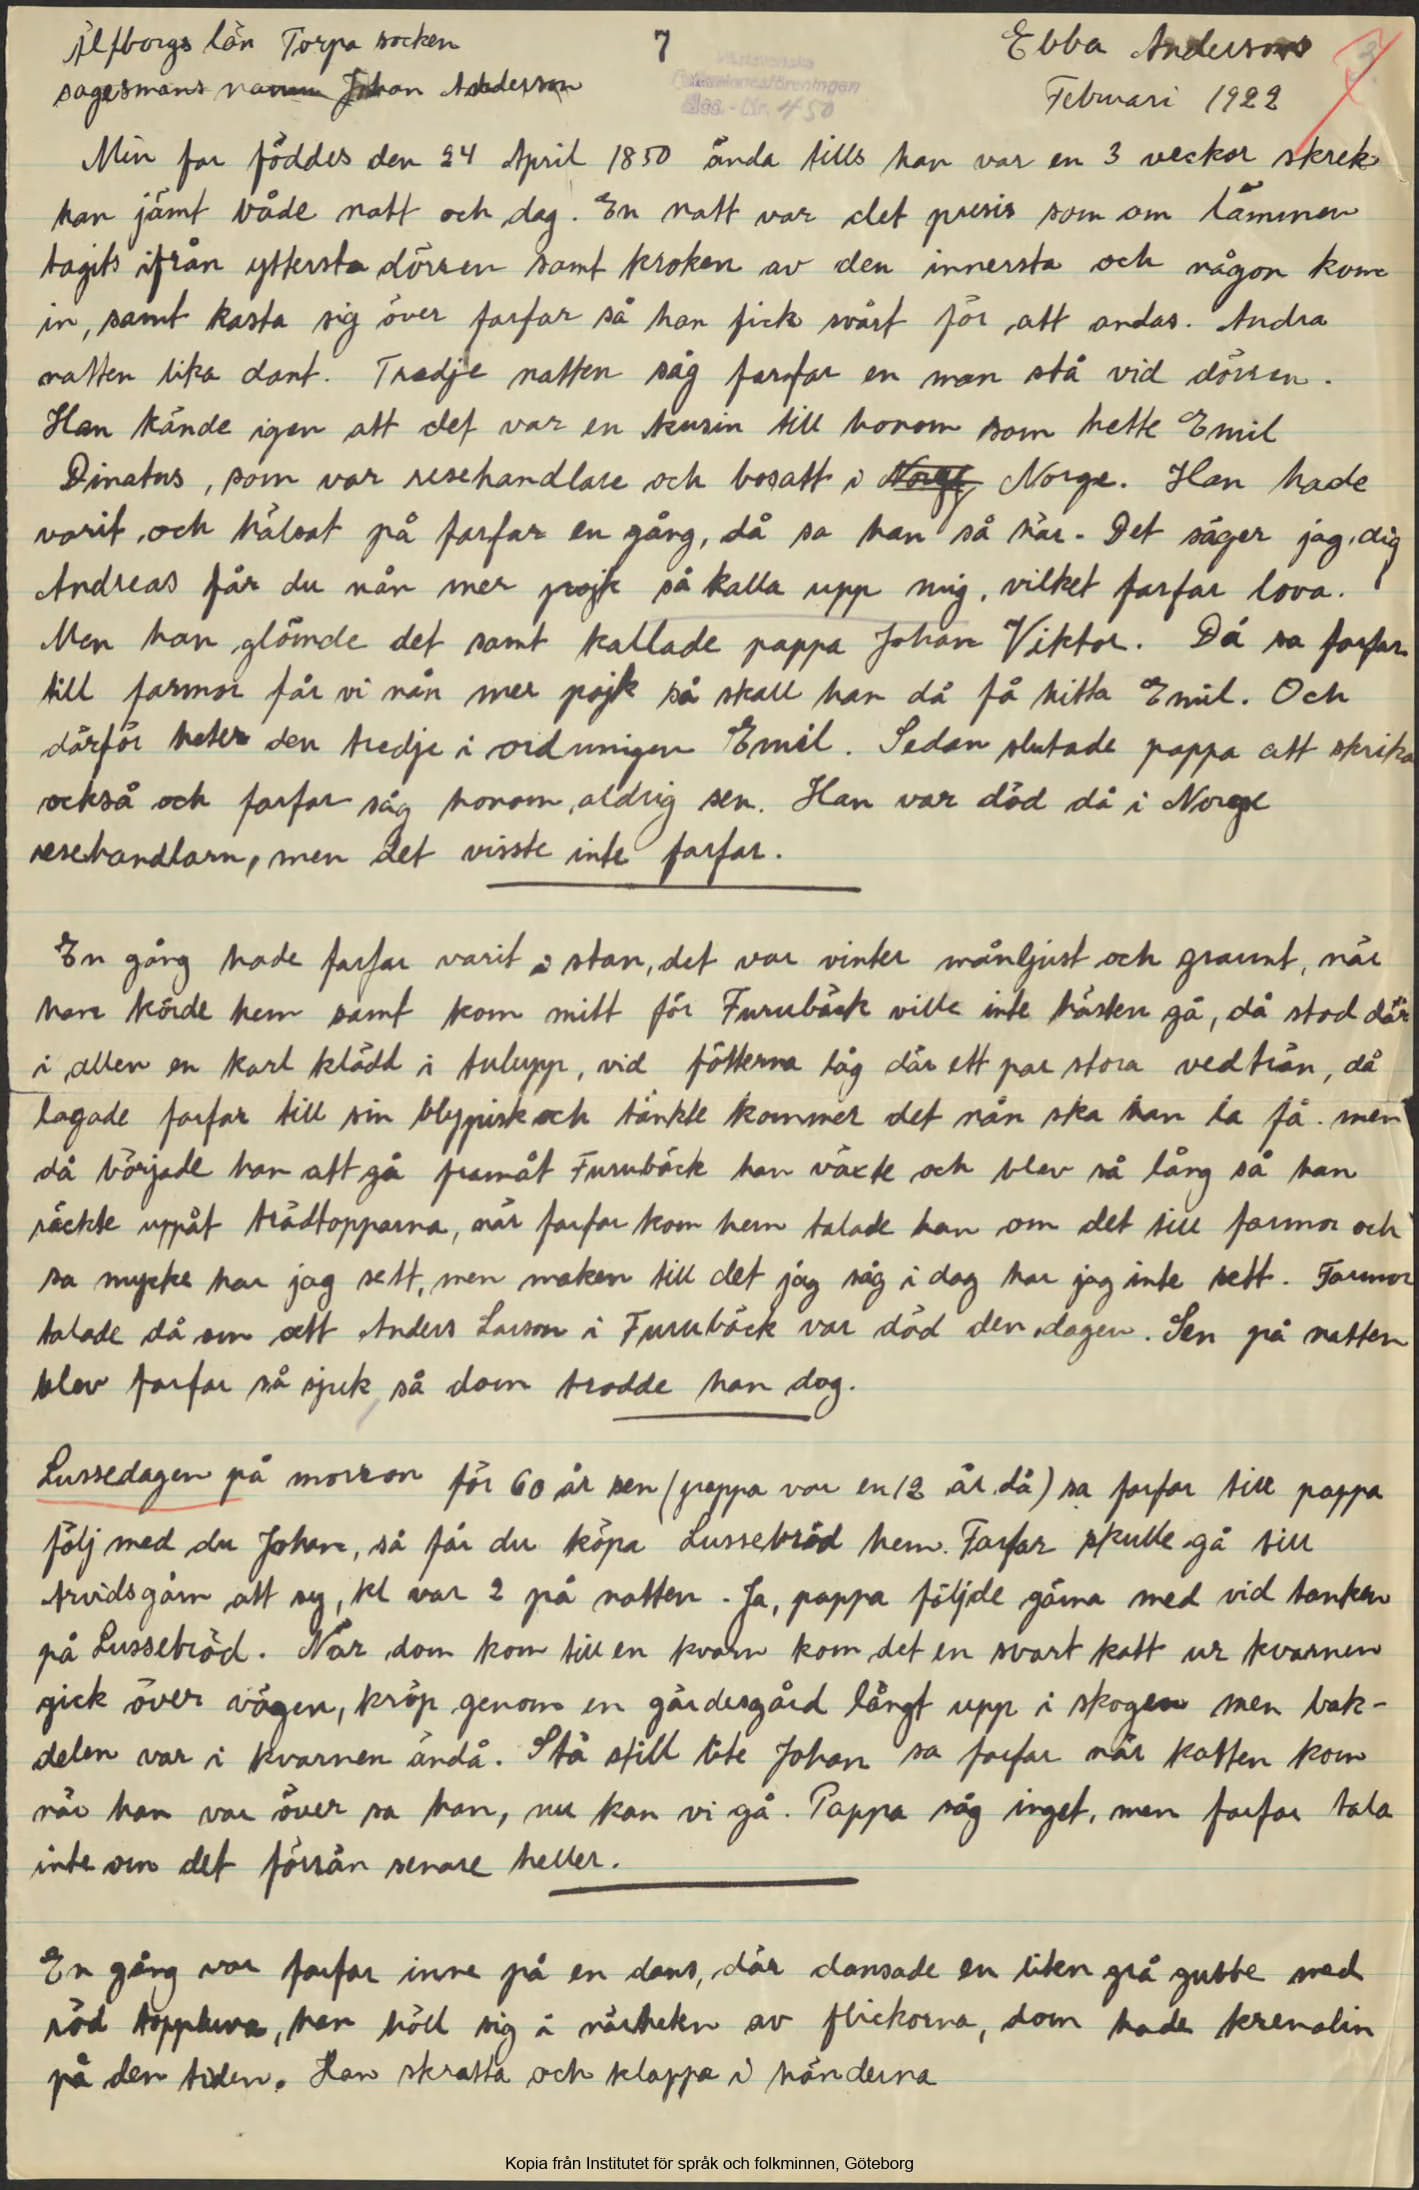 Älfborgs län Torpa socken 7 Ebba Anderson
sagesmans namn Johan Andersson Februari 1922
450
Min far föddes den 24 April 1850 ända tills han var en 3 veckor skrek
han jämt både natt och dag. En natt var det presis som om lämmen
tagits ifrån yttersta dörren samt kroken av den innersta och någon kom
in, samt kasta sig över farfar så han fick svårt för att andas. Andra
natten lika dant. Tredje natten såg farfar en man stå vid dörren.
Han kände igen att det var en kusin till honom som hette Emil
Dinatus, som var resehandlare och bosatt i Norge Norge. Han hade
varit och hälsat på farfar en gång, då sa han så här. Det säger jag dig
Andreas får du nån mer projk så kalla upp mig, vilket farfar lova.
Men han glömde det samt kallade pappa Johan Viktor. Då sa farfar
till farmor får vi nån mer pojk så skall han då få hitta Emil. Och
därför heter den tredje i ordningen Emil. Sedan slutade pappa att skrika
också och farfar såg honom aldrig sen. Han var död då i Norge
resehandlarn, men det visste inte farfar.
En gång hade farfar varit i stan, det var vinter månljust och grannt, när
han körde hem samt kom mitt för Furubäck ville inte hästen gå, då stod där
i allen en karl klädd i tulupp, vid fötterna låg där ett par stora vedträn, då
lagade farfar till sin blypisk och tänkte kommer det nån ska han ta få. men
då började han att gå framåt Furubäck han växte och blev så lång så han
räckte uppåt trädtopparna, när farfar kom hem talade han om det till farmor och
sa mycke har jag sett, men maken till det jag såg i dag har jag inte sett. Farmor
talade då om att Anders Larson i Furubäck var död den dagen. Sen på natten
blev farfar så sjuk så dom trodde han dog.
Lussedagen på morron för 60 år sen (pappa var en 12 år då) sa farfar till pappa
följ med du Johan, så får du köpa Lussebröd hem. Farfar skulle gå till
Arvidsgårn att sy, kl var 2 på natten. Ja, pappa följde gärna med vid tanken
på Lussebröd. När dom kom till en kvarn kom det en svart katt ur kvarnen
gick över vägen, kröp genom en gärdesgård långt upp i skogen men bak-
delen var i kvarnen ändå. Stå still lite Johan sa farfar när katten kom
när han var över sa han, nu kan vi gå. Pappa såg inget, men farfar tala
inte om det förrän senare heller.
En gång var farfar inne på en dans, där dansade en liten grå gubbe med
röd toppluva, han höll sig i närheten av flickorna, dom hade krenolin
på den tiden. Han skratta och klappa i händerna
Kopia från Institutet för språk och folkminnen, Göteborg